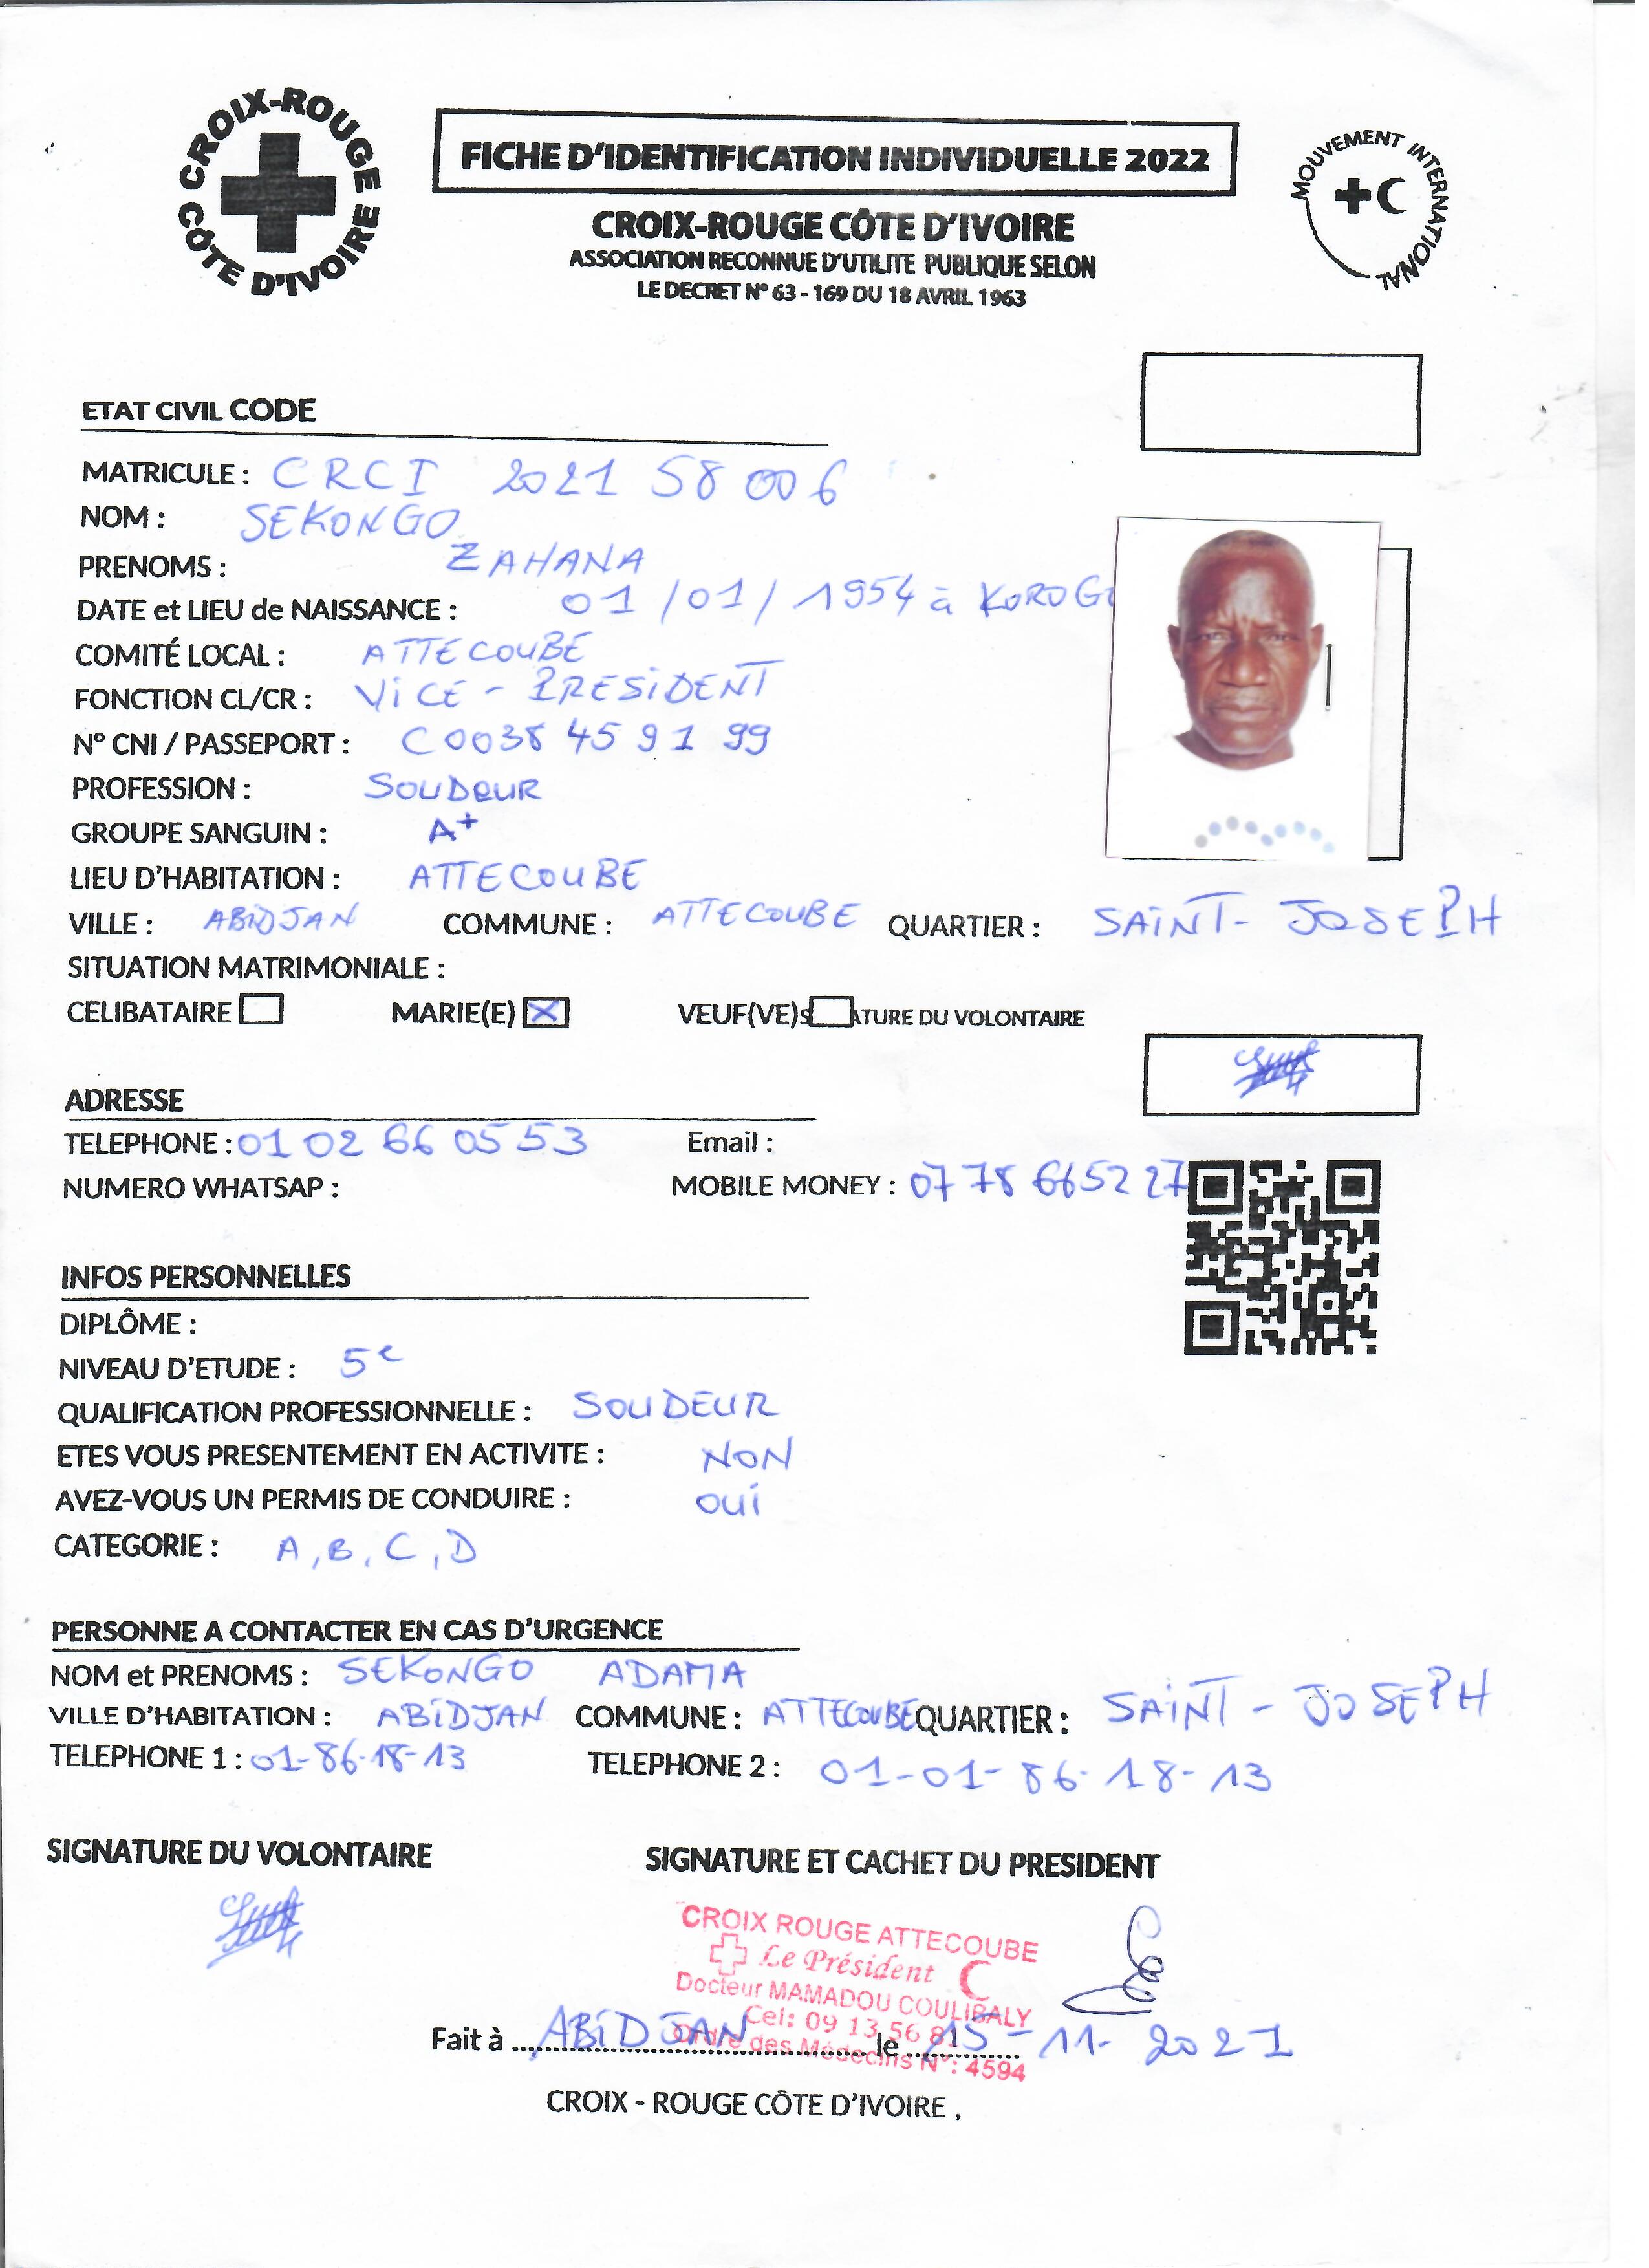 CROIX-ROUGE
CÔTE D'IVOIRE
FICHE D'IDENTIFICATION INDIVIDUELLE 2022
MOUVEMENT INTERNATIONAL
CROIX-ROUGE CÔTE D'IVOIRE
ASSOCIATION RECONNUE D'UTILITE PUBLIQUE SELON
LE DECRET N° 63 - 169 DU 18 AVRIL 1963
ETAT CIVIL CODE
MATRICULE : CRCI 2021 58 006
NOM : SEKONGO
PRENOMS : ZAHANA
DATE et LIEU de NAISSANCE : 01/01/1954 à KOROGO
COMITÉ LOCAL : ATTECOUBE
FONCTION CL/CR : VICE - PRESIDENT
N° CNI / PASSEPORT : C0038 45 91 99
PROFESSION : SOUDEUR
GROUPE SANGUIN : A+
LIEU D'HABITATION : ATTECOUBE
VILLE : ABIDJAN COMMUNE : ATTECOUBE QUARTIER : SAINT-JOSEPH
SITUATION MATRIMONIALE :
CELIBATAIRE MARIE(E) X VEUF(VE)S ATURE DU VOLONTAIRE
ADRESSE
TELEPHONE : 01 02 66 05 53 Email :
NUMERO WHATSAP : MOBILE MONEY : 07 78 665227
INFOS PERSONNELLES
DIPLÔME :
NIVEAU D'ETUDE : 5e
QUALIFICATION PROFESSIONNELLE : SOUDEUR
ETES VOUS PRESENTEMENT EN ACTIVITE : NON
AVEZ-VOUS UN PERMIS DE CONDUIRE : OUI
CATEGORIE : A, B, C, D
PERSONNE A CONTACTER EN CAS D'URGENCE
NOM et PRENOMS : SEKONGO ADAMA
VILLE D'HABITATION : ABIDJAN COMMUNE : ATTECOUBE QUARTIER : SAINT - JOSEPH
TELEPHONE 1 : 01-86-18-13 TELEPHONE 2 : 01-01-86-18-13
SIGNATURE DU VOLONTAIRE SIGNATURE ET CACHET DU PRESIDENT
CROIX ROUGE ATTECOUBE
Le Président
Docteur MAMADOU COULIBALY
Cel: 09 13 56 81
Ordre des Médecins N°: 4594
Fait à ABIDJAN le 15-11-2021
CROIX - ROUGE CÔTE D'IVOIRE ,